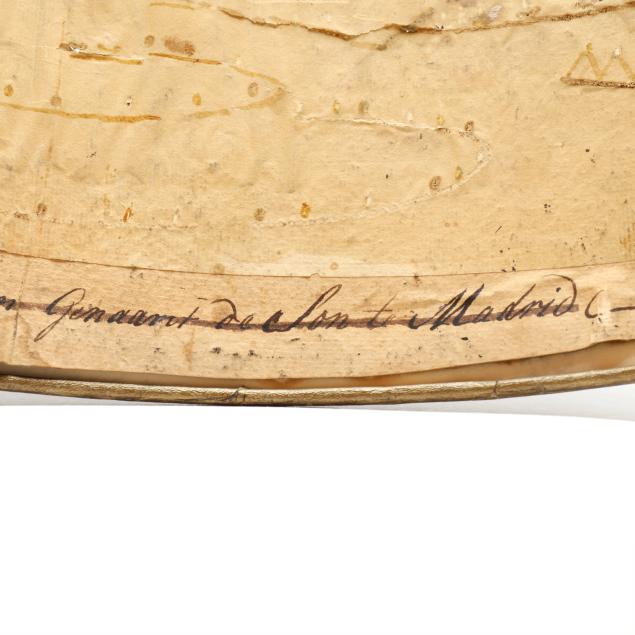 Genaamt de Son te Madrid (—